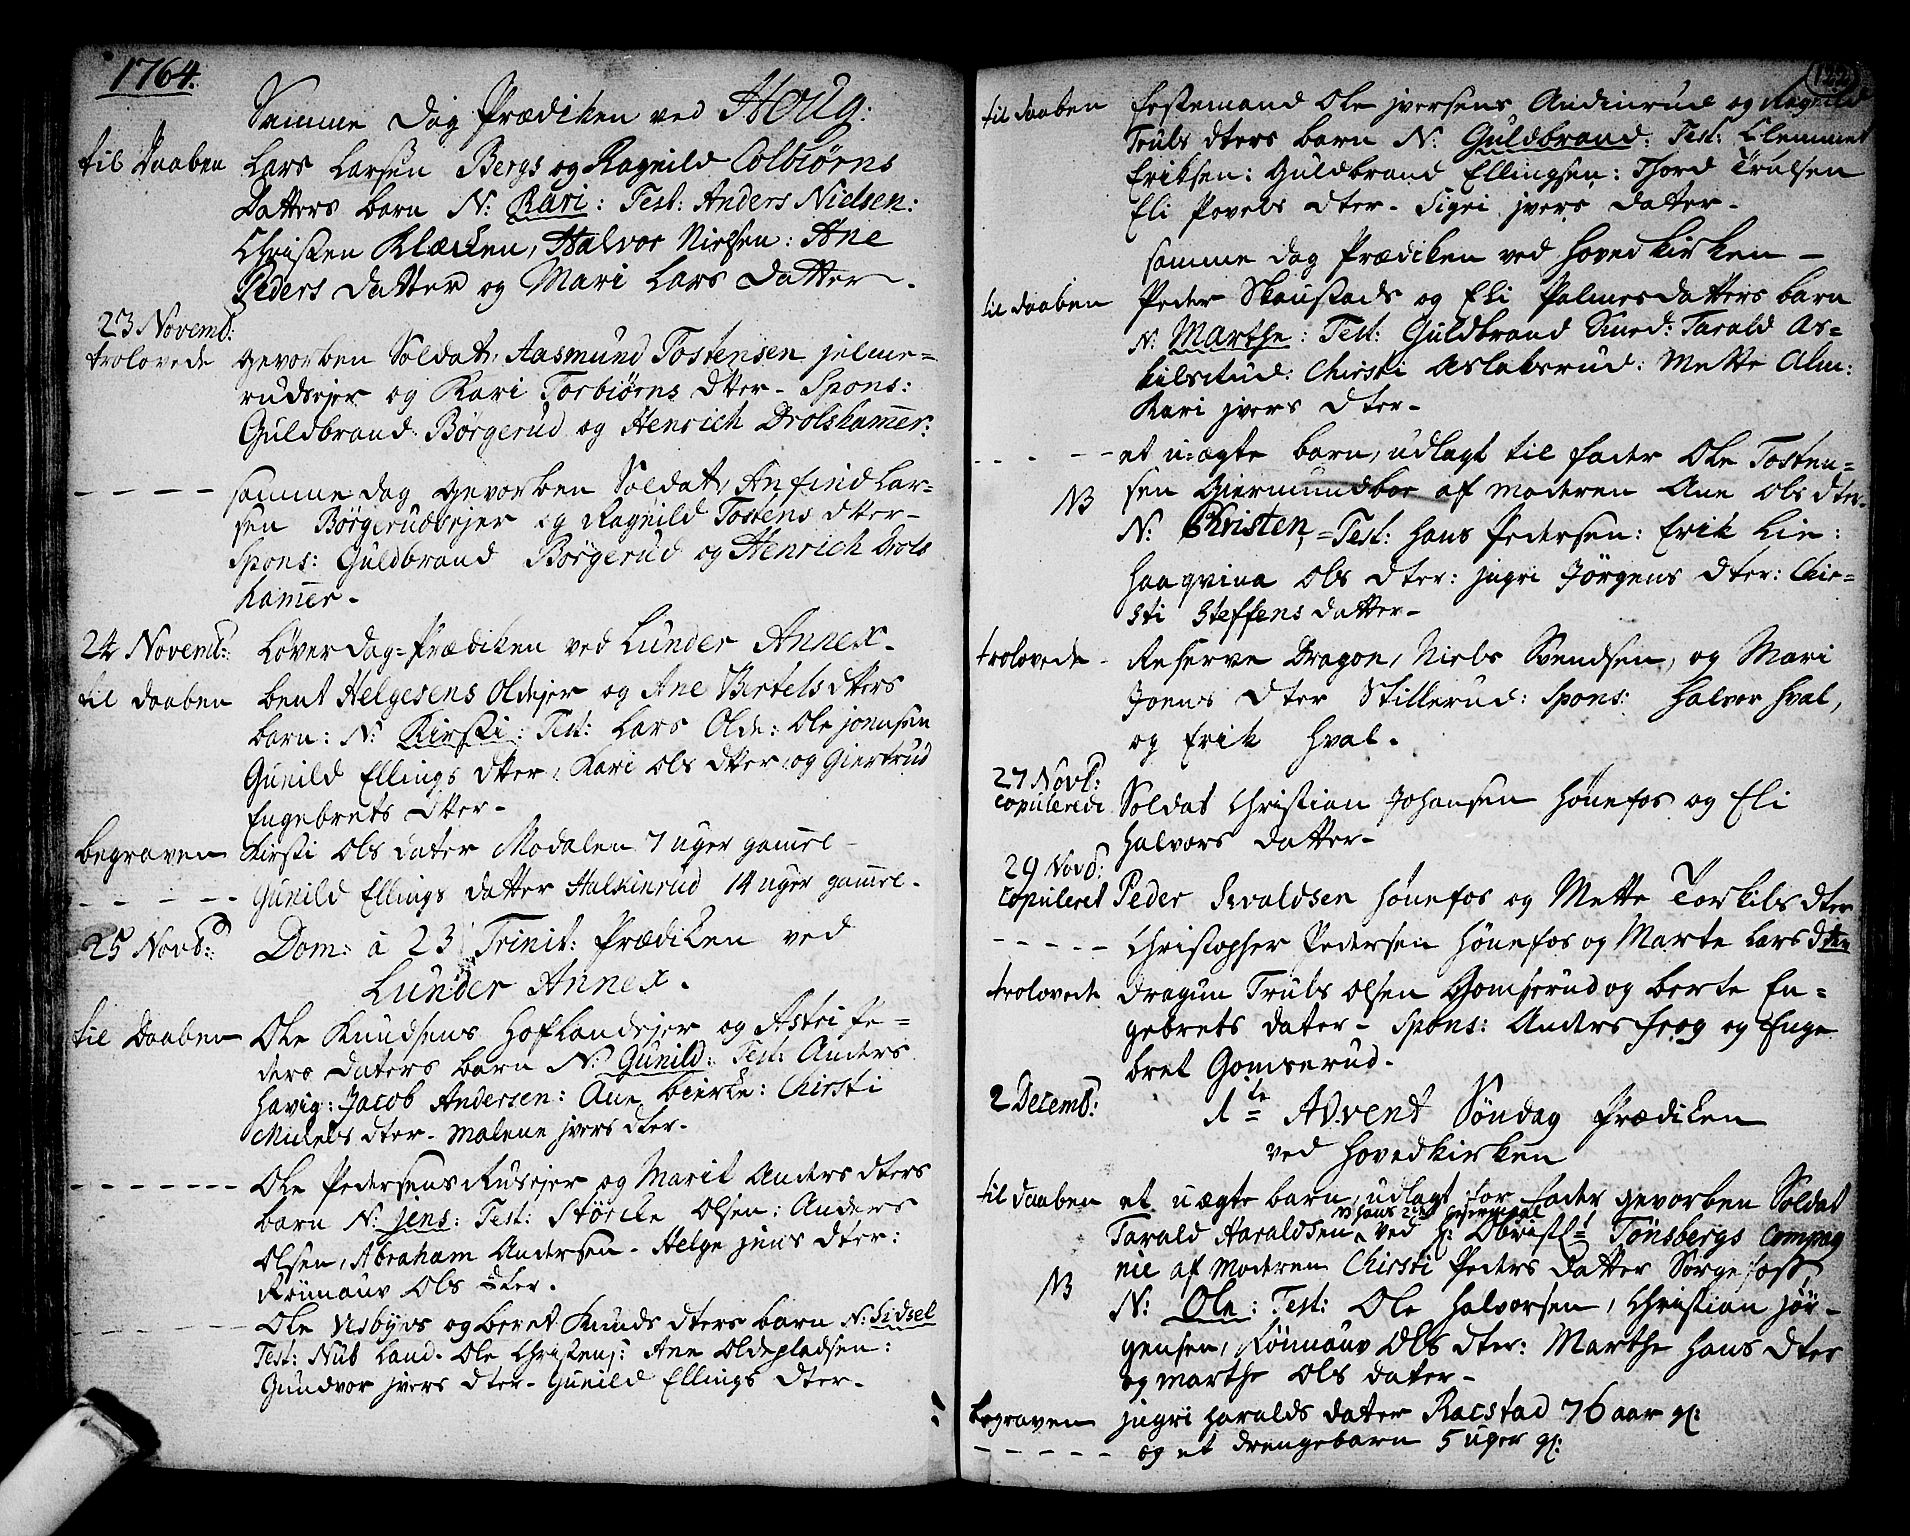 1764.
Samme Dag Prædiken ved Houg:
til Daaben Lars Larsen Bergs og Ragnild Colbiørns
Datters barn N: Kari: Test: Anders Nielsen:
Christen Klæcken, Halvor Nielsen: Ane
Peders datter og Mari Lars Datter.
23 Novemb:
trolovede gevorben Soldat, Aasmund Tostensen jelme=
rudsejer og Kari Torbiørns dter- Spons:
Guldbrand Børgerud og Henrich Drolshamer:
- - - - samme dag gevorben Soldat, Anfind Lar=
sen Børgerudsejer og Ragnild Tostens dter-
Spons: Guldbrand Børgerud og Henrich Drols
hamer-
24 Novemb: Løverdag-Prædiken ved Lunder Annex-
til daaben bent Helgesens Oldejer og Ane Bertels dters
barn: N: Kirsti: Test: Lars Olde: Ole jonnsen
Gunild Ellings dter, Kari Ols dter, og Giertrud
Engebrets dter-
begraven Kirsti Ols dater Modalen 7 uger gamel-
- - - - - Gunild Ellings datter Halkinrud 14 uger gamel-
25 Novb: Dom: à 23 Trinit: Prædiken ved
Lunder Annex.
til Daaben Ole Knudsens Hoflandsejer og Astri Pe=
ders daters barn N: Gunild: Test: Anders
Havig: Jacob Andersen: Ane beirke: Chirsti
Michels dter- Malene jvers dter-
- - - - - - Ole Pedersens Rusejer og Marit Anders dters
barn N: jens: Test: Støreke Olsen: Anders
Olsen, Abraham Andersen- Helge jens dter:
Rønnauv Ols dter.
- - - - - - Ole Visbyes og beret Knuds dters barn N: Sidsel
Test: Nub Land- Ole Christens: Ane Oldepladsen:
Gundvor jvers dter- Gunild Ellings dter-
122
til daaben festemand Ole jversens Andinrud og Ragnild
Truls dters barn N: Guldbrand: Test: Clemmet
Eriksen: Guldbrand Ellingsen: Thord Trulsen
Eli Povels dter- Sigri jvers datter-
samme dag Prædiken ved Hovedkirken-
til daaben Peder Skaustads og Eli Palmesdatters barn
N: Marthe: Test: Guldbrand Smed: Tarald As=
kilsrud: Chirsti Aslaksrud: Mette Alm:
Kari jvers dter-
- - - - - et u-ægte barn, udlagt til fader Ole Tosten=
NB sen Giermundboe af moderen Ane Ols dter-
N: Christen,- Test: Hans Pedersen: Erik Lie:
Haaqvina Ols dter: jngri Jørgens dter: Chir=
sti Steffens datter-
trolovede- Reserve Dragon, Niels Svendsen, og Mari
Joens dter Stillerud: Spons: Halvor Hval,
og Erik Hval.
27 Novb:
copulerede Soldat Christian Johansen Hønefos og Eli
Halvors datter-
29 Novb:
copuleret Peder Ivaldsen Hønefos og Mette Torkils dter
- - - - - Christopher Pedersen Hønefos og Marte Lars dter
trolovede dragun Truls Olsen Gomserud og berte En=
gebrets dater- Spons: Anders Frog og Enge
bret Gomserud-
2 Decemb: 1te Advent Søndag Prædiken
ved Hovedkirken
til daaben et uægte barn, udlagt for fader gevorben Soldat
Tarald Haraldsen ved H: Obristl: Tønsbergs Compag
nie af moderen Chirsti Peders datter Sørgefoss,
NB N: Ole: Test: Ole Halvorsen, Christian Jør-
gensen, Rønnauv Ols dter: Marthe Hans dter
og marthe Ols dater-
begraven jngri Haralds dater Racstad 76 aar gl:
- - - - - og et drengebarn 5 uger gl: